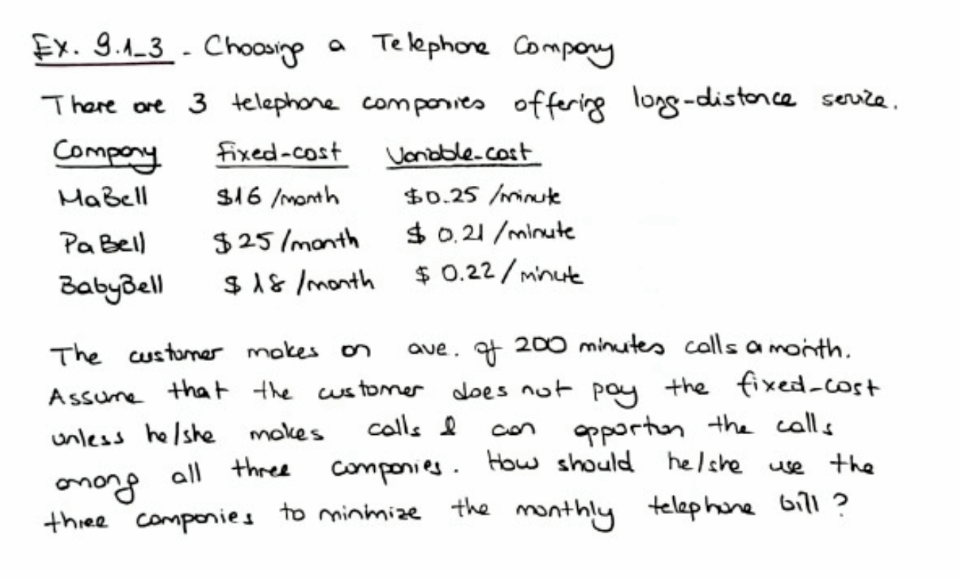 Ex. 9.1_3 - Choosing a Telephone Company
There are 3 telephone companies offering long-distance service.
Company Fixed-cost Variable-cost
MaBell $16 /month $0.25 /minute
PaBell $25 /month $ 0.21 /minute
BabyBell $ 18 /month $ 0.22 / minute
The customer makes on ave. of 200 minutes calls a month.
Assume that the customer does not pay the fixed-cost
unless he/she makes calls & can apportion the calls
among all three companies. How should he/she use the
three companies to minimize the monthly telephone bill ?